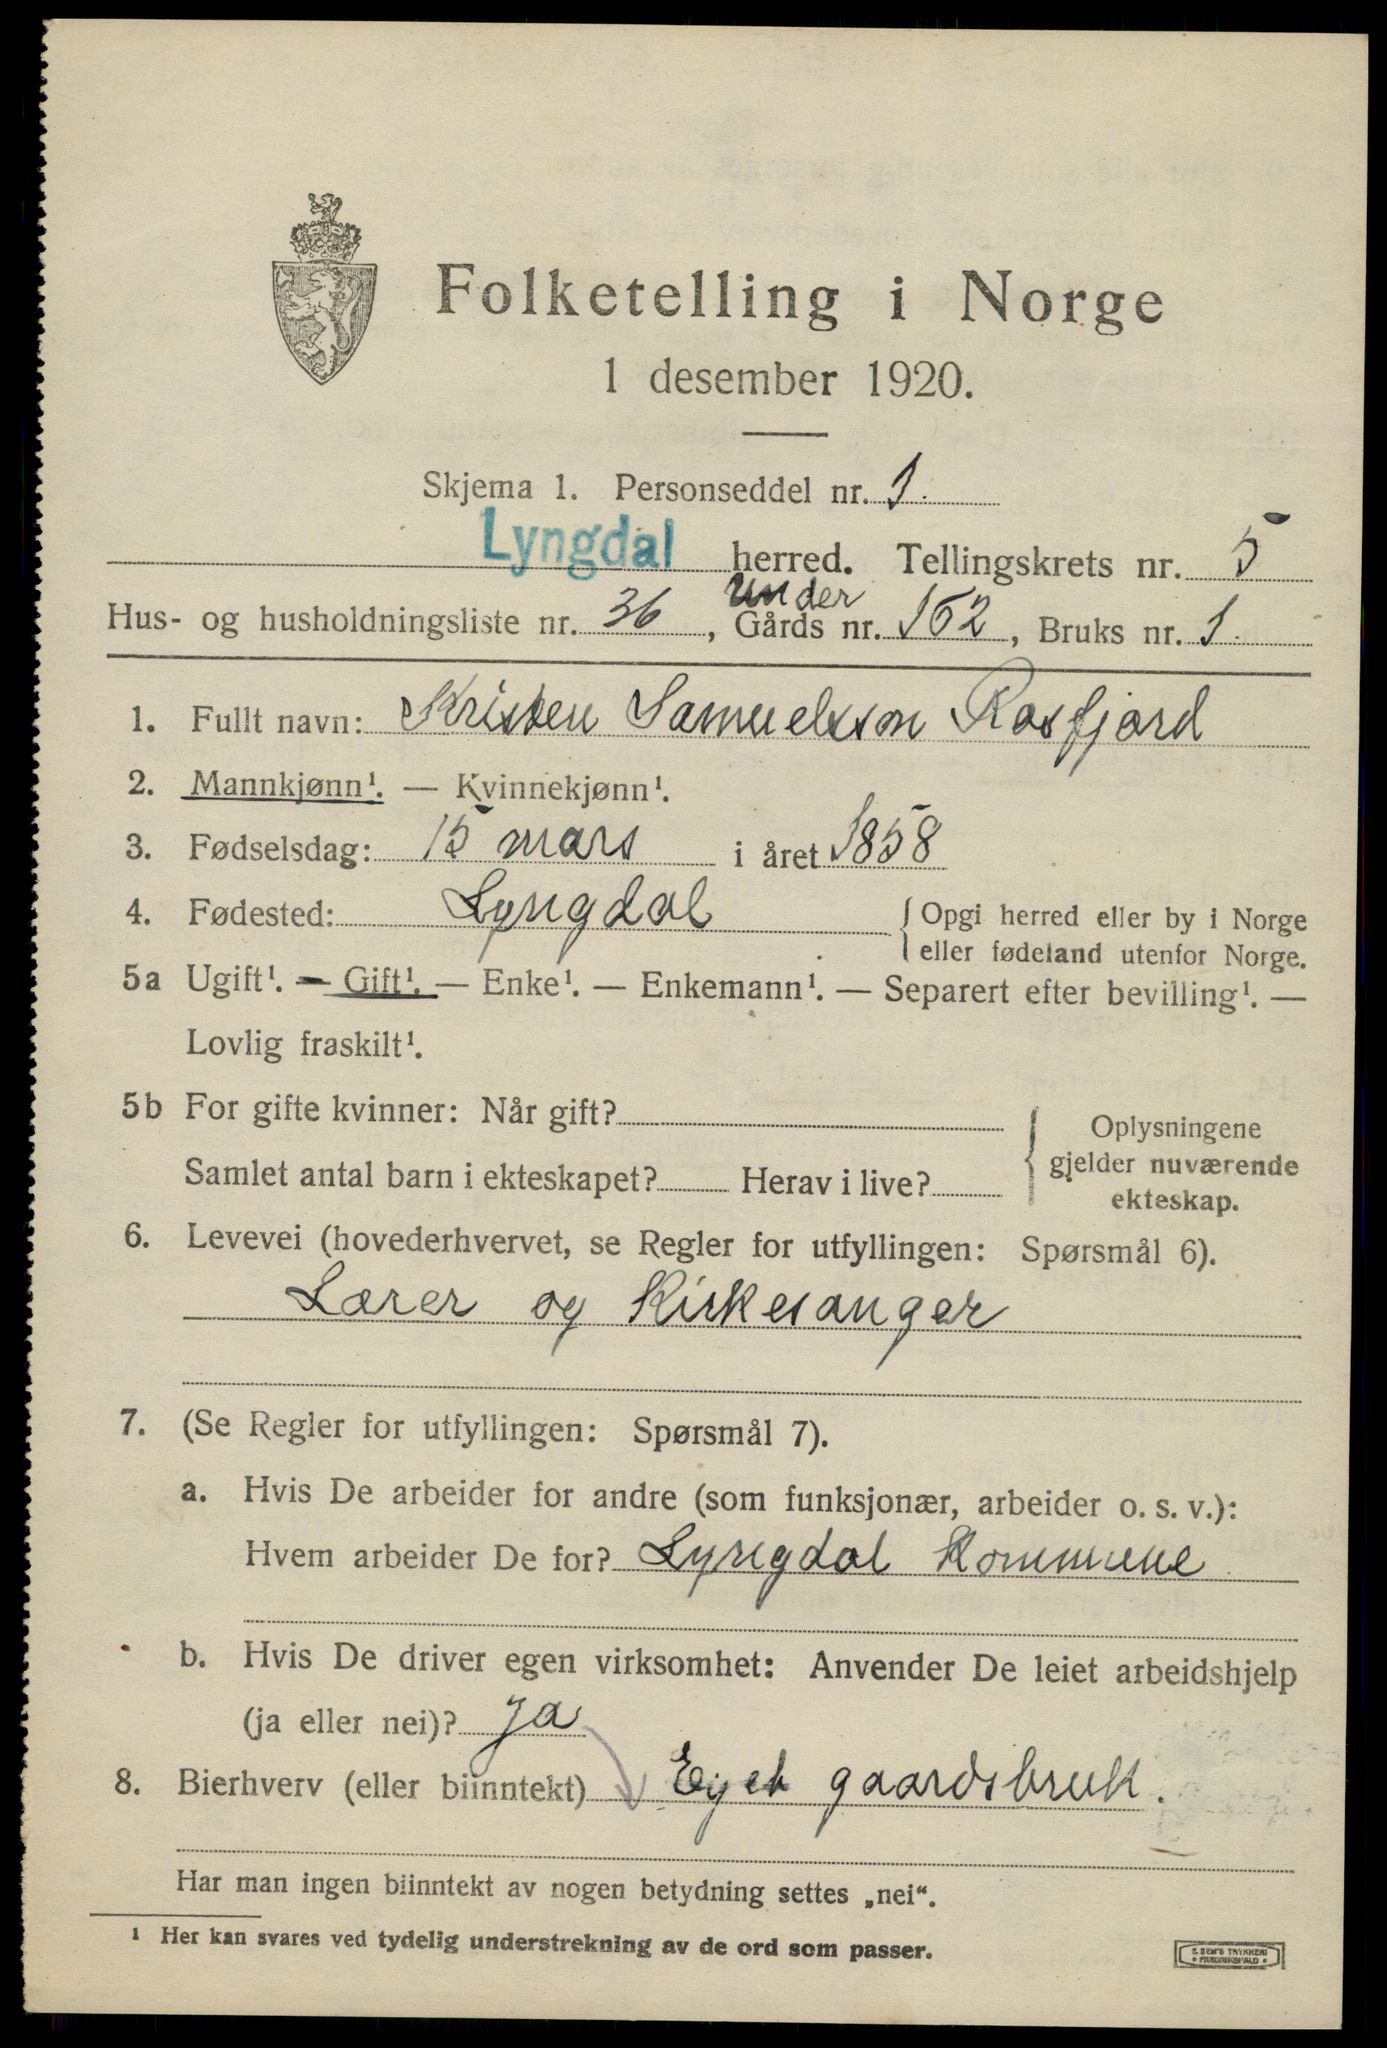 Folketelling i Norge
1 desember 1920.
Skjema 1. Personseddel nr. 1.
Lyngdal herred. Tellingskrets nr. 5
under
Hus- og husholdningsliste nr. 36, Gårds nr. 162, Bruks nr. 1.
1. Fullt navn: Kristen Samuelsson Rosfjord
2. Mannkjønn¹. — Kvinnekjønn¹.
3. Fødselsdag: 15 mars i året 1858
4. Fødested: Lyngdal { Opgi herred eller by i Norge
eller fødeland utenfor Norge.
5a Ugift¹. — Gift¹. — Enke¹. — Enkemann¹. — Separert efter bevilling¹. —
Lovlig fraskilt¹.
5b For gifte kvinner: Når gift? { Oplysningene
gjelder nuværende
Samlet antal barn i ekteskapet? Herav i live?
ekteskap.
6. Levevei (hovederhvervet, se Regler for utfyllingen: Spørsmål 6).
Lærer og Kirkesanger
7. (Se Regler for utfyllingen: Spørsmål 7).
a. Hvis De arbeider for andre (som funksjonær, arbeider o. s. v.):
Hvem arbeider De for? Lyngdal Kommune
b. Hvis De driver egen virksomhet: Anvender De leiet arbeidshjelp
(ja eller nei)? ja
8. Bierhverv (eller biinntekt) Eget gaardsbruk.
Har man ingen biinntekt av nogen betydning settes „nei“.
¹ Her kan svares ved tydelig understrekning av de ord som passer.
E. SEM'S TRYKKERI
• FREDRIKSHALD •